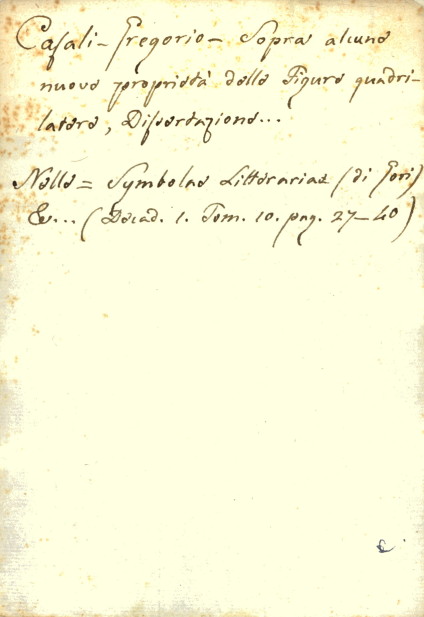 Casali - Gregorio - Sopra alcune
nuove proprietà delle Figure quadri-
latere, Dissertazione...
Nelle = Symbolae Litterariae (di Gori)
&... (Decad. 1. Tom. 10. pag. 27-40)